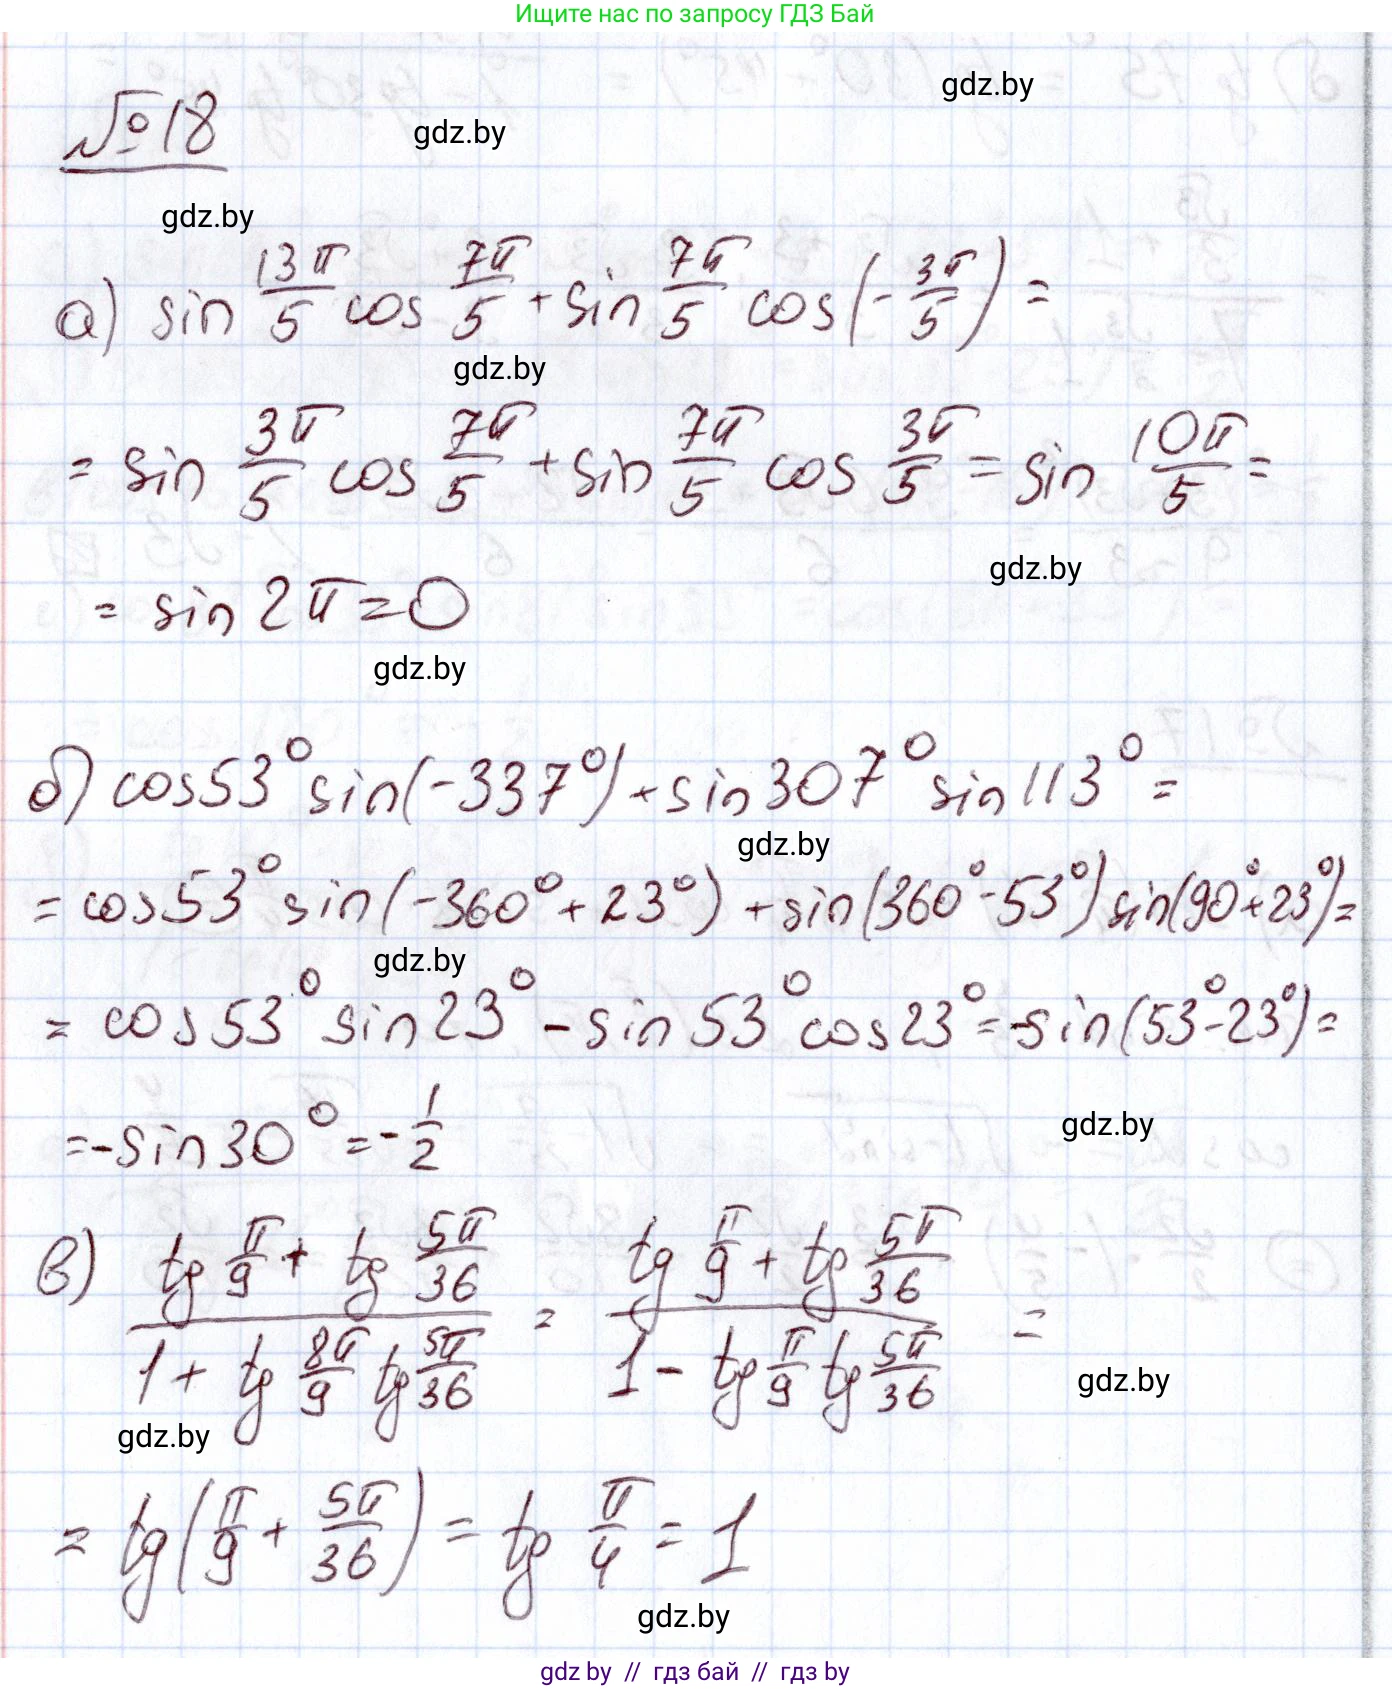 Ищите нас по запросу ГДЗ Бай
gdz.by
№18
gdz.by
gdz.by
а) sin 13π/5 cos 7π/5 + sin 7π/5 cos(-3π/5) =
gdz.by
= sin 3π/5 cos 7π/5 + sin 7π/5 cos 3π/5 = sin 10π/5 =
gdz.by
= sin 2π = 0
gdz.by
б) cos53° sin(-337°) + sin307° sin113° =
gdz.by
= cos53° sin(-360° + 23°) + sin(360° - 53°) sin(90° + 23°) =
gdz.by
= cos53° sin23° - sin53° cos23° = -sin(53° - 23°) =
gdz.by
= -sin30° = -1/2
в) (tg π/9 + tg 5π/36)/(1 + tg 8π/9 tg 5π/36) = (tg π/9 + tg 5π/36)/(1 - tg π/9 tg 5π/36) =
gdz.by
gdz.by
= tg(π/9 + 5π/36) = tg π/4 = 1
gdz.by
gdz by // гдз бай // гдз by